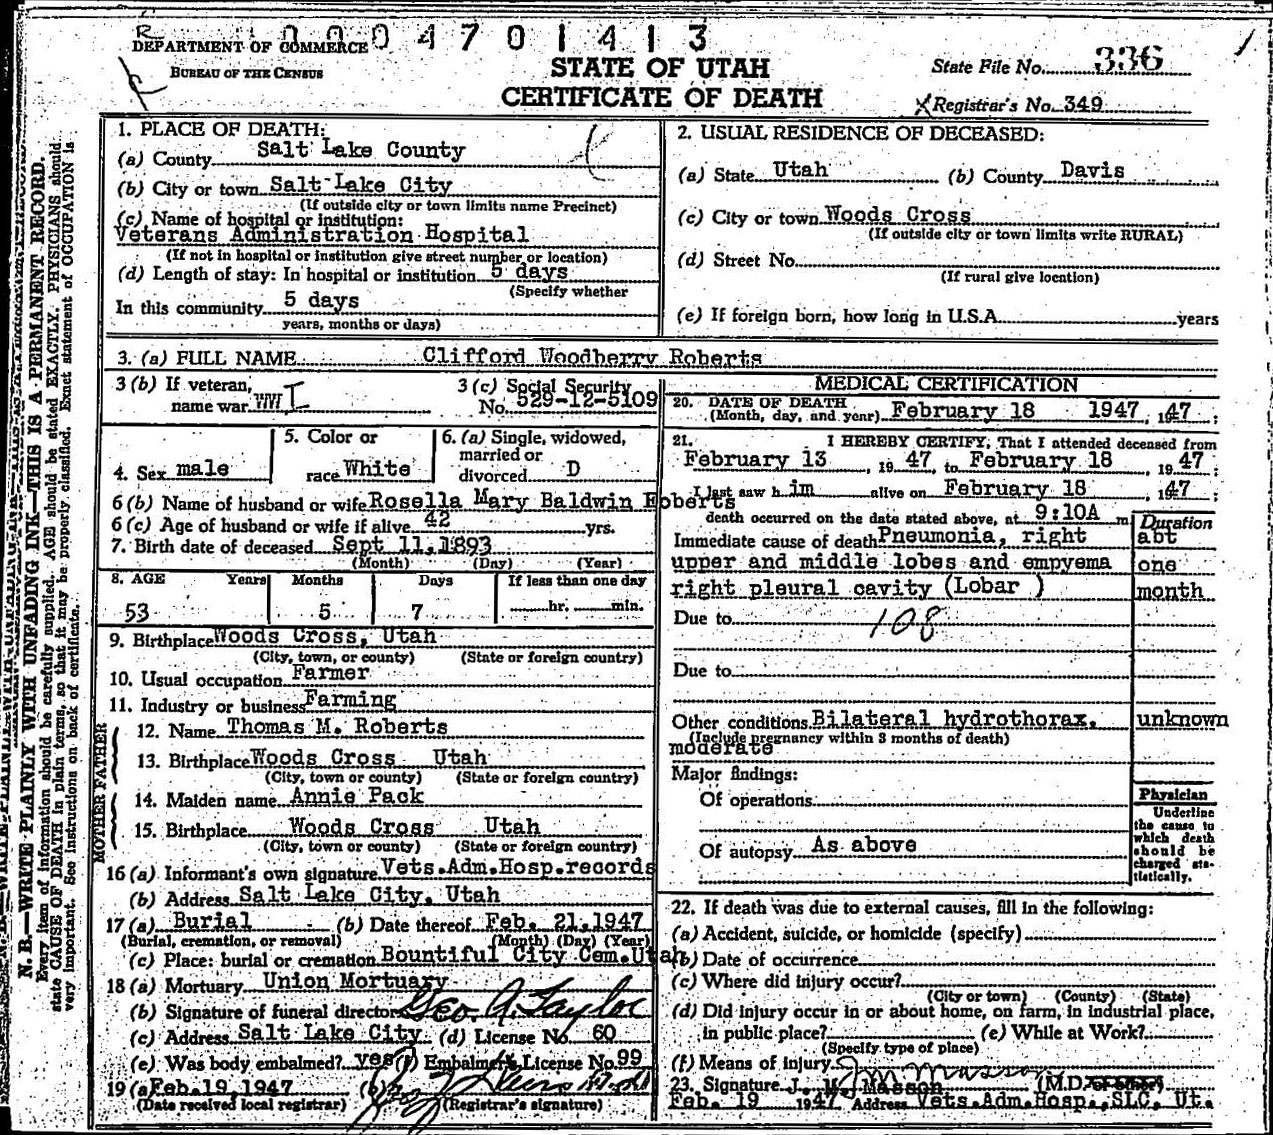 0004701413
DEPARTMENT OF COMMERCE
BUREAU OF THE CENSUS
STATE OF UTAH
CERTIFICATE OF DEATH
State File No. 336
Registrar's No. 349
N. B.—WRITE PLAINLY WITH UNFADING INK—THIS IS A PERMANENT RECORD.
Every item of information should be carefully supplied. AGE should be stated EXACTLY. PHYSICIANS should
state CAUSE OF DEATH in plain terms, so that it may be properly classified. Exact statement of OCCUPATION is
very important. See instructions on back of certificate.
1. PLACE OF DEATH:
(a) County Salt Lake County
(b) City or town Salt Lake City
(If outside city or town limits name Precinct)
(c) Name of hospital or institution:
Veterans Administration Hospital
(If not in hospital or institution give street number or location)
(d) Length of stay: In hospital or institution 5 days
(Specify whether
In this community 5 days
years, months or days)
2. USUAL RESIDENCE OF DECEASED:
(a) State Utah (b) County Davis
(c) City or town Woods Cross
(If outside city or town limits write RURAL)
(d) Street No.
(If rural give location)
(e) If foreign born, how long in U.S.A. years
3. (a) FULL NAME Clifford Woodberry Roberts
3 (b) If veteran,
name war WW I
3 (c) Social Security
No. 529-12-5109
4. Sex male
5. Color or
race White
6. (a) Single, widowed,
married or
divorced D
6 (b) Name of husband or wife Rosella Mary Baldwin Roberts
6 (c) Age of husband or wife if alive 42 yrs.
7. Birth date of deceased Sept 11, 1893
(Month) (Day) (Year)
8. AGE Years Months Days If less than one day
53 5 7 hr. min.
9. Birthplace Woods Cross, Utah
(City, town, or county) (State or foreign country)
10. Usual occupation Farmer
11. Industry or business Farming
FATHER
12. Name Thomas M. Roberts
13. Birthplace Woods Cross Utah
(City, town or county) (State or foreign country)
MOTHER
14. Maiden name Annie Pack
15. Birthplace Woods Cross Utah
(City, town or county) (State or foreign country)
16 (a) Informant's own signature Vets.Adm.Hosp.records
(b) Address Salt Lake City, Utah
17 (a) Burial (b) Date thereof Feb. 21, 1947
(Burial, cremation, or removal) (Month) (Day) (Year)
(c) Place: burial or cremation Bountiful City Cem.Utah
18 (a) Mortuary Union Mortuary
(b) Signature of funeral director Geo A. Taylor
(c) Address Salt Lake City (d) License No. 60
(e) Was body embalmed? yes (f) Embalmer's License No. 99
19 (a) Feb. 19, 1947 (b)
(Date received local registrar) (Registrar's signature)
MEDICAL CERTIFICATION
20. DATE OF DEATH
(Month, day, and year) February 18 1947, 1947;
21. I HEREBY CERTIFY, That I attended deceased from
February 13, 1947, to February 18, 1947;
I last saw him alive on February 18, 1947;
death occurred on the date stated above, at 9:10A m
Duration
Immediate cause of death Pneumonia, right abt
upper and middle lobes and empyema one
right pleural cavity (Lobar ) month
Due to 108
Due to
Other conditions Bilateral hydrothorax, unknown
(Include pregnancy within 3 months of death)
moderate
Major findings:
Of operations
Of autopsy As above
Physician
Underline
the cause to
which death
should be
charged sta-
tistically.
22. If death was due to external causes, fill in the following:
(a) Accident, suicide, or homicide (specify)
(b) Date of occurrence
(c) Where did injury occur?
(City or town) (County) (State)
(d) Did injury occur in or about home, on farm, in industrial place,
in public place? (e) While at Work?
(Specify type of place)
(f) Means of injury
J M Masson
23. Signature J. M. Masson (M.D.
Feb. 19 1947 Address Vets.Adm.Hosp.,SLC, Ut.